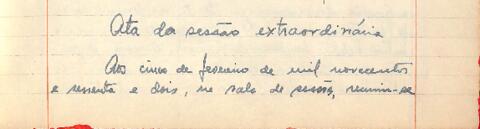 Ata da sessão extraordinária
Aos cinco de fevereiro de mil novecentos
e sessenta e dois, na sala de sessão, reuniu-se